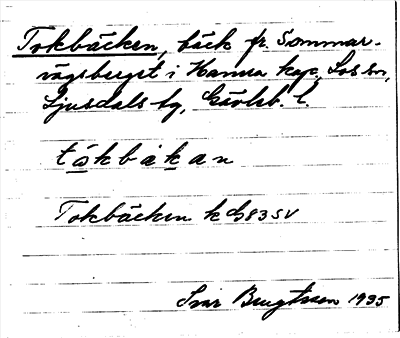 Tokbäcken, bäck fr. Sommar-
vågsberget i Hamra kap., Los sn,
Ljusdals tg, Gävleb. l.
tókbäkan
Tokbäcken k 83 SV
Ivar Bengtsson 1935